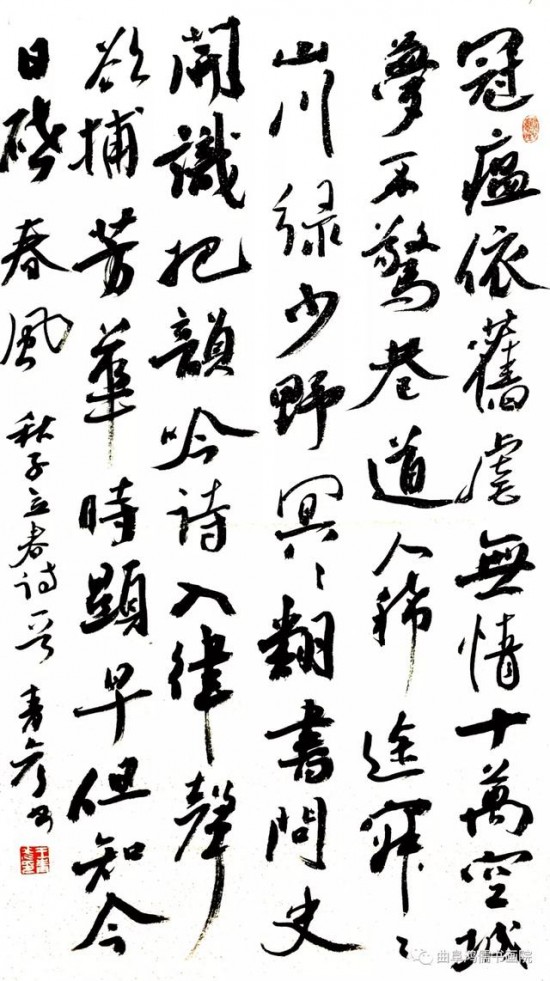 冠瘟依舊虐無情十萬空城
夢不驚巷道人稀途寂々
山川綠少野冥々翻書問史
開識把韻吟詩入律聲
欲捕芳華時顯早但知今
日啓春風 秋子立春诗 青彦书
曲阜鸿儒书画院